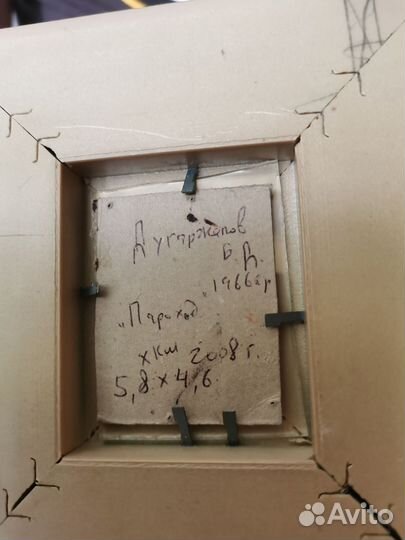 Дугаржапов
Б.Д.
1966гр
"Пароход"
хкм 2008 г.
5,8 х 4,6
Avito